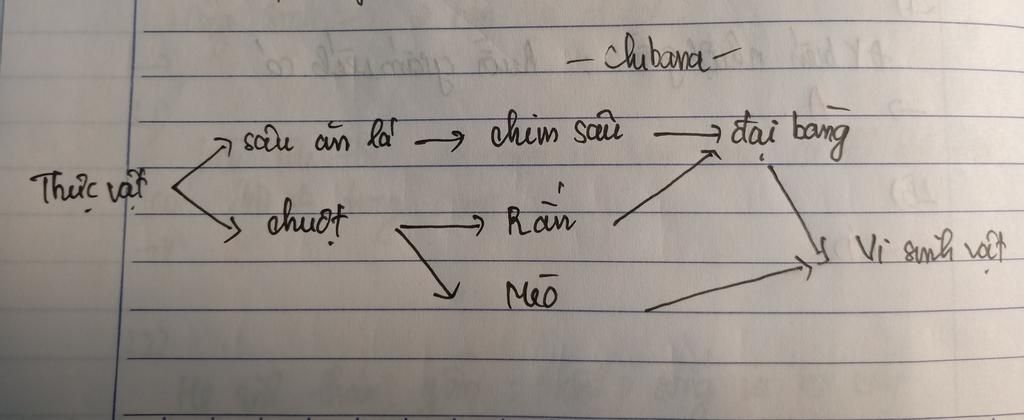 — Chibana —
sâu ăn lá → chim sâu → đại bàng
Thực vật
chuột → Rắn
Vi sinh vật
Mèo